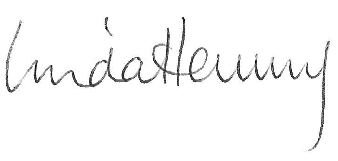 Linda Henning